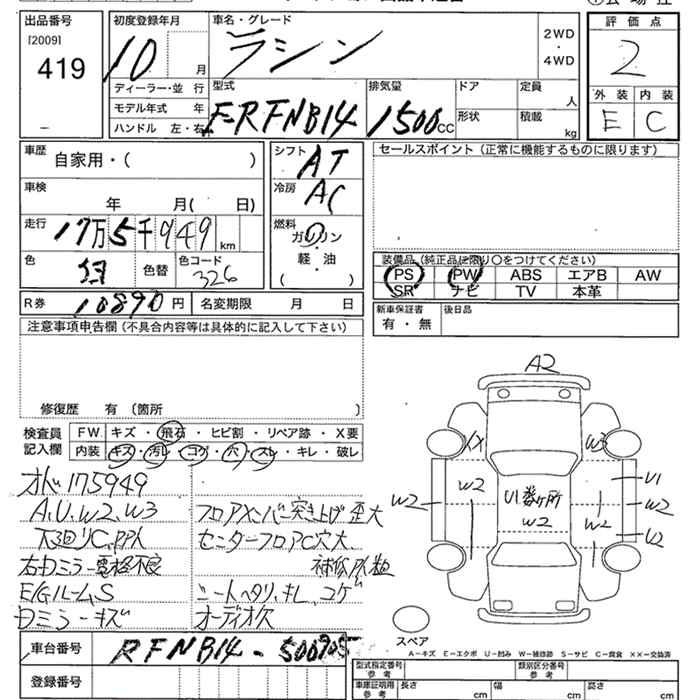 出品番号
[2009]
419
初度登録年月
10 月
車名・グレード
ラシーン
2WD
・
4WD
評価点
2
外装 内装
E C
ディーラー・並 行
モデル年式 年
ハンドル 左・右
型式
E-RFNB14
排気量
1500cc
ドア
形状
定員
人
積載
kg
車歴
自家用・( )
車検
年 月( 日)
走行
17万5千949 km
色
紺
色替
色コード
326
シフト
AT
冷房
AC
燃料
ガソリン
軽・油
( )
セールスポイント(正常に機能するものに限ります)
装備品(純正品に限り○をつけてください)
PS PW ABS エアB AW
SR ナビ TV 本革
R券 10890円 名変期限 月 日
新車保証書
有・無
後日品
注意事項申告欄(不具合内容等は具体的に記入して下さい)
修復歴 有(箇所
検査員
記入欄
FW キズ・飛石・ヒビ割・リペア跡・X要
内装 キズ・汚レ・コゲ・穴・スレ・キレ・破レ
オド175949
A.U.W2.W3
下廻りC.P.P人
右Dミラー電格不良
E/Gルーム.S
Dミラーキズ
フロアメンバー突き上げ歪大
センターフロアC穴大
シートヘタリ.キレ.コゲ
オーディオ欠
A2
W3
W2
W2
U1
W2
U2
W2
W2
スペア
A-キズ E-エクボ U-凹み W-補修跡 S-サビ C-腐食 XX-交換済
車台番号 RFNB14-500905
登録番号
型式指定番号
参考
類別区分番号
参考
車庫証明用
参考
長さ cm
幅 cm
高さ cm